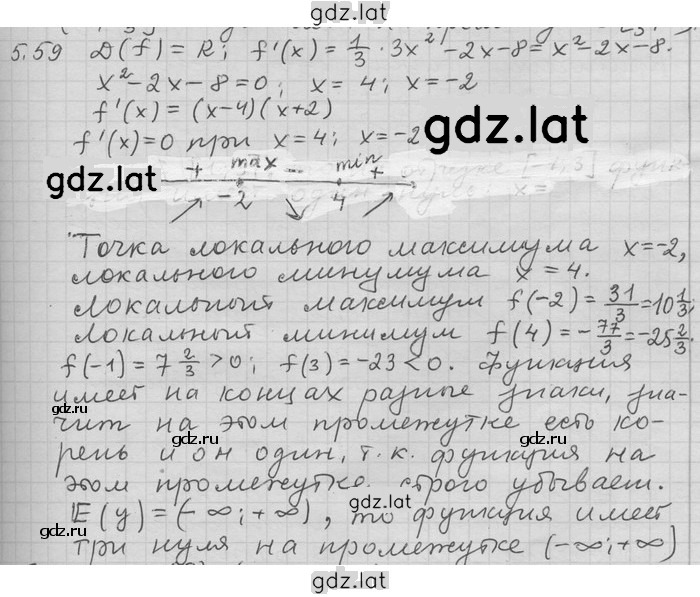 gdz.lat
5.59 D(f) = R; f'(x) = 1/3 · 3x² - 2x - 8 = x² - 2x - 8.
x² - 2x - 8 = 0; x = 4; x = -2
f'(x) = (x-4)(x+2)
f'(x) = 0 при x = 4; x = -2
gdz.lat
gdz.lat
+ max - min +
-2 4
Точка локального максимума x = -2,
локального минумума x = 4.
Локальный максимум f(-2) = 31/3 = 10 1/3;
Локальный минимум f(4) = -77/3 = -25 2/3.
f(-1) = 7 2/3 > 0; f(3) = -23 < 0. Функция
имеет на концах разные знаки, зна-
чит на этом промежутке есть ко-
gdz.lat
gdz.lat
рень и он один, т.к. функция на
этом промежутке строго убывает.
gdz.lat
gdz.lat
E(y) = (-∞; +∞), то функция имеет
три нуля на промежутке (-∞; +∞)
gdz.lat